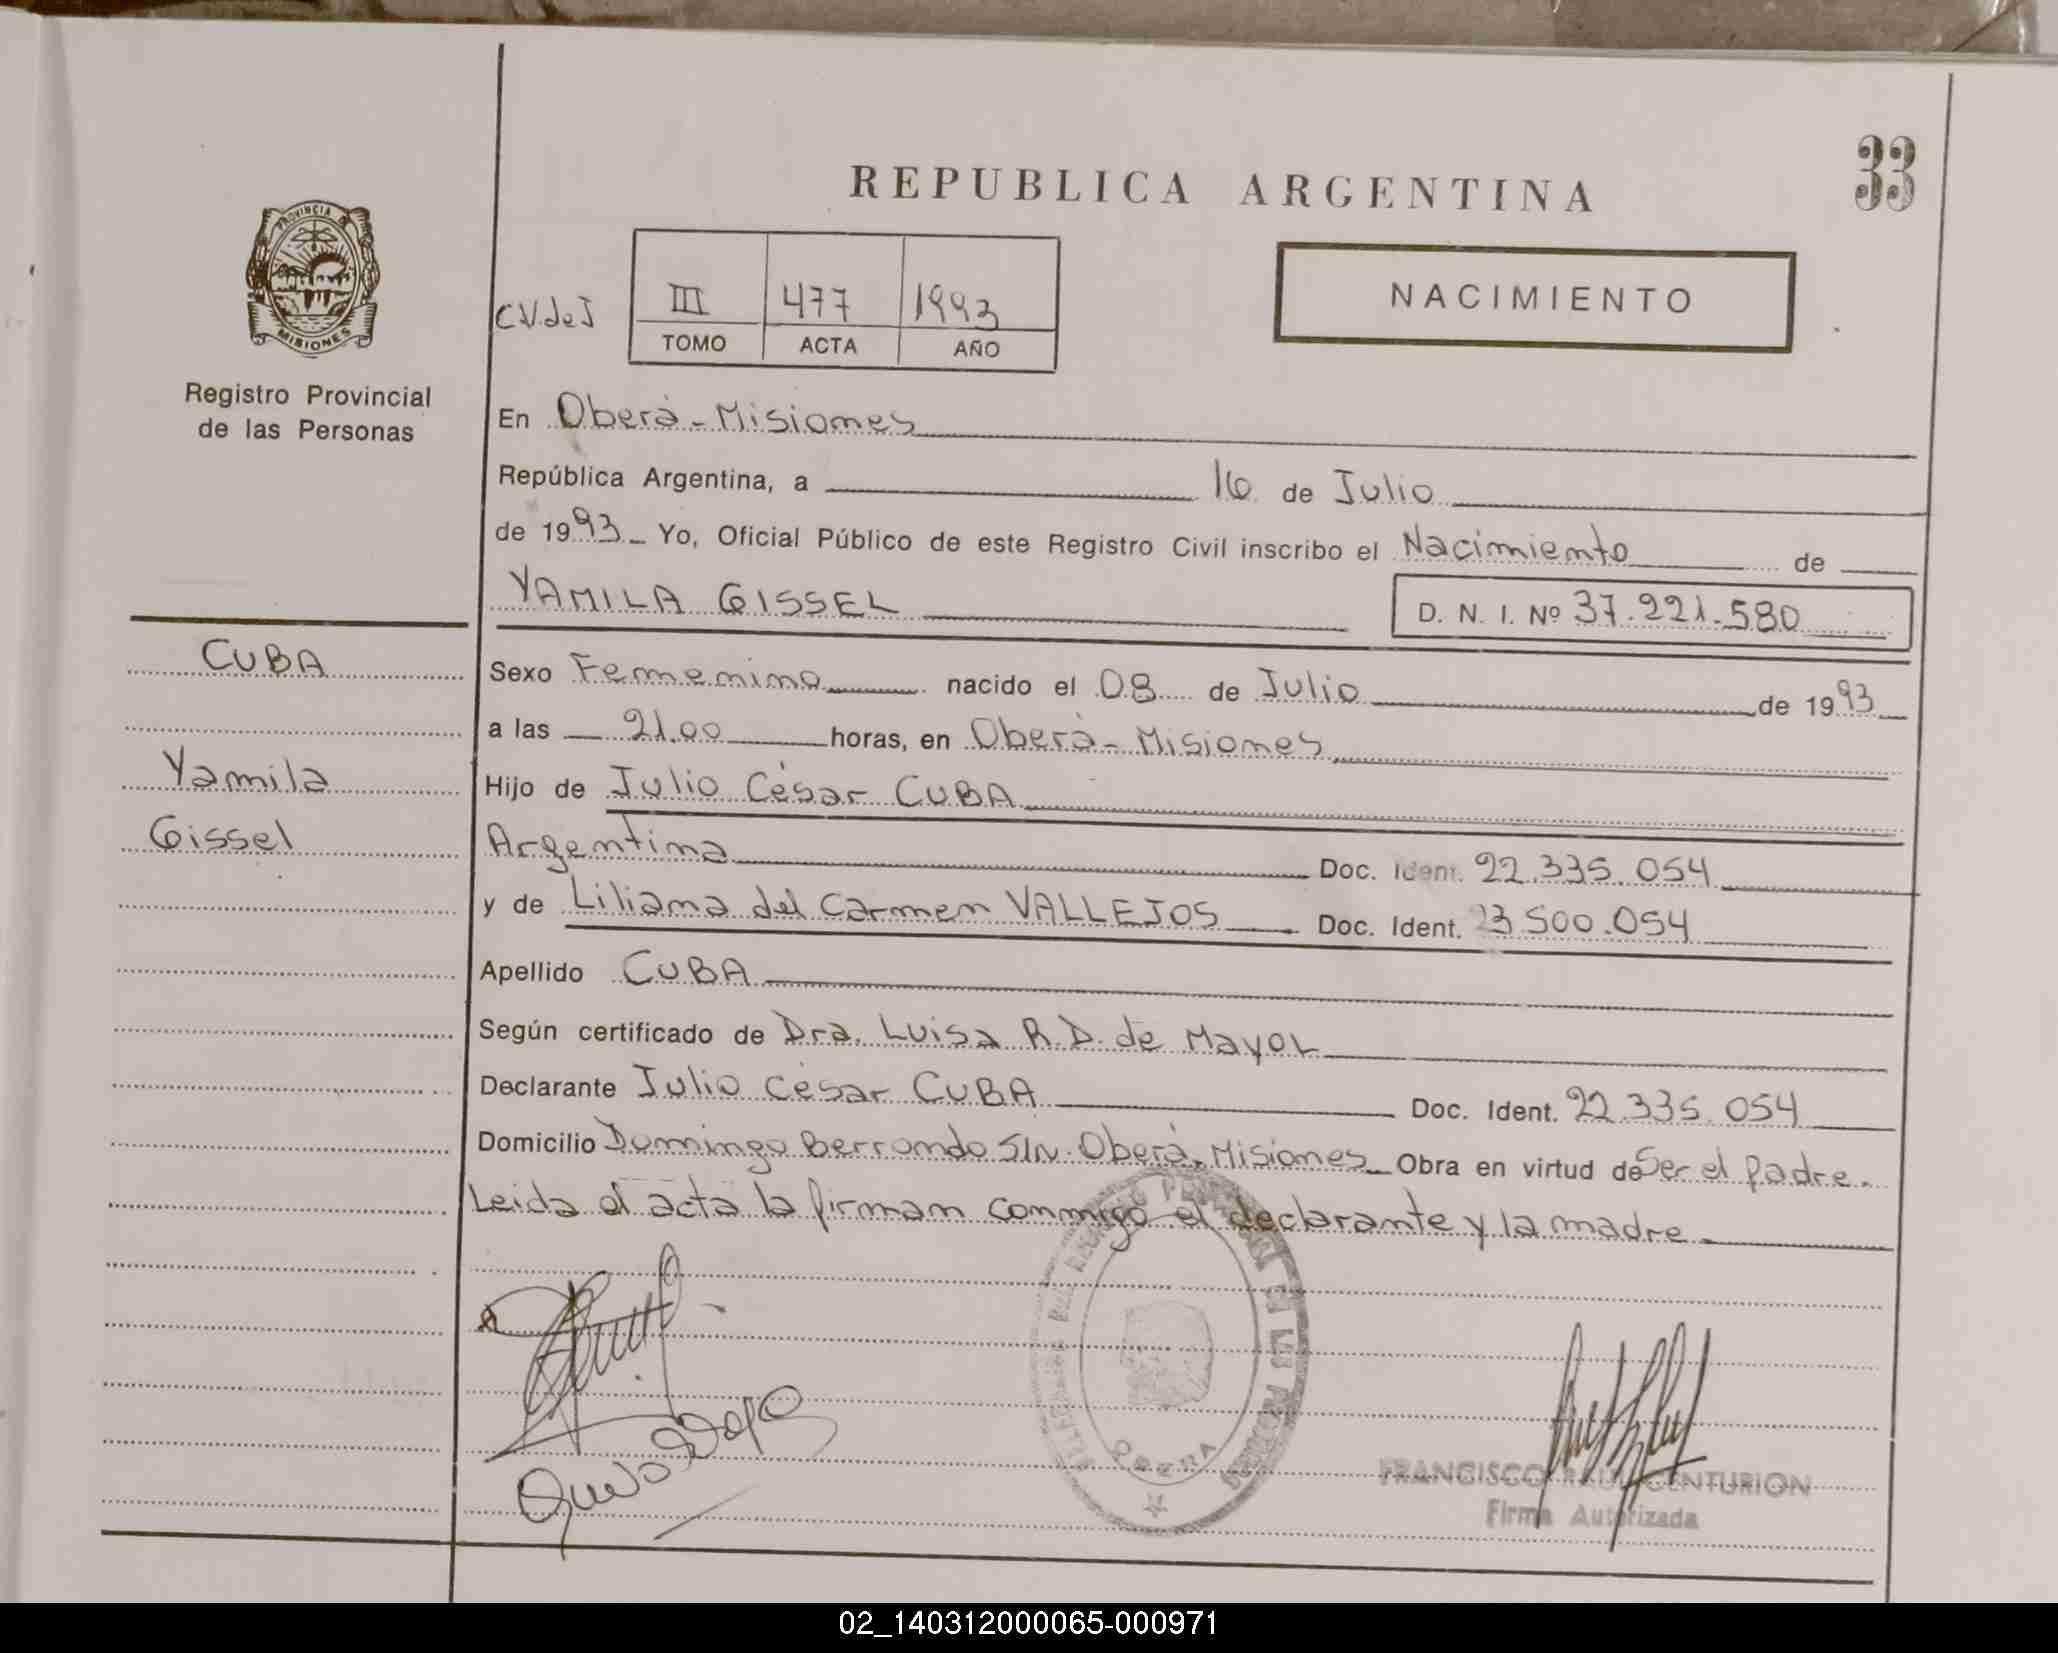 33
REPUBLICA ARGENTINA
PROVINCIA DE
MISIONES
Registro Provincial
de las Personas
C.V.deJ
III 477 1993
TOMO ACTA AÑO
NACIMIENTO
En Oberá - Misiones
República Argentina, a 16 de Julio
de 1993 Yo, Oficial Público de este Registro Civil inscribo el Nacimiento de
YAMILA GISSEL D. N. I. Nº 37.221.580
CUBA
Yamila
Gissel
Sexo Femenino nacido el 08 de Julio de 1993
a las 21.00 horas, en Oberá - Misiones
Hijo de Julio César CUBA
Argentina Doc. Ident. 22.335.054
y de Liliana del Carmen VALLEJOS Doc. Ident. 23.500.054
Apellido CUBA
Según certificado de Dra. Luisa R.D. de Mayol
Declarante Julio César CUBA Doc. Ident. 22.335.054
Domicilio Domingo Berrondo S/N. Oberá, Misiones Obra en virtud de Ser el padre.
Leida el acta la firman conmigo el declarante y la madre
OBERA
FRANCISCO RAUL CENTURION
Firma Autorizada
02_140312000065-000971